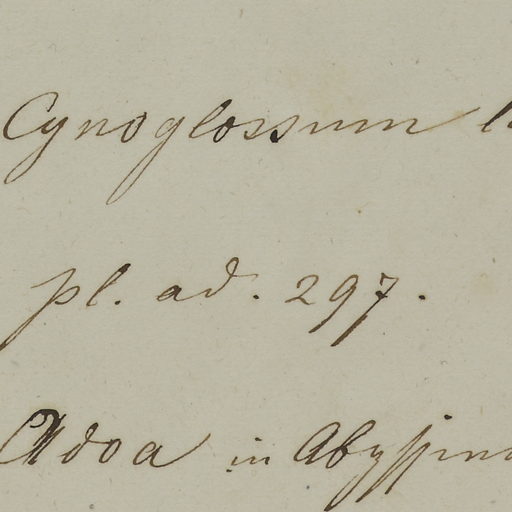 Cynoglossum
pl. ad. 297.
Adoa in Abyssin